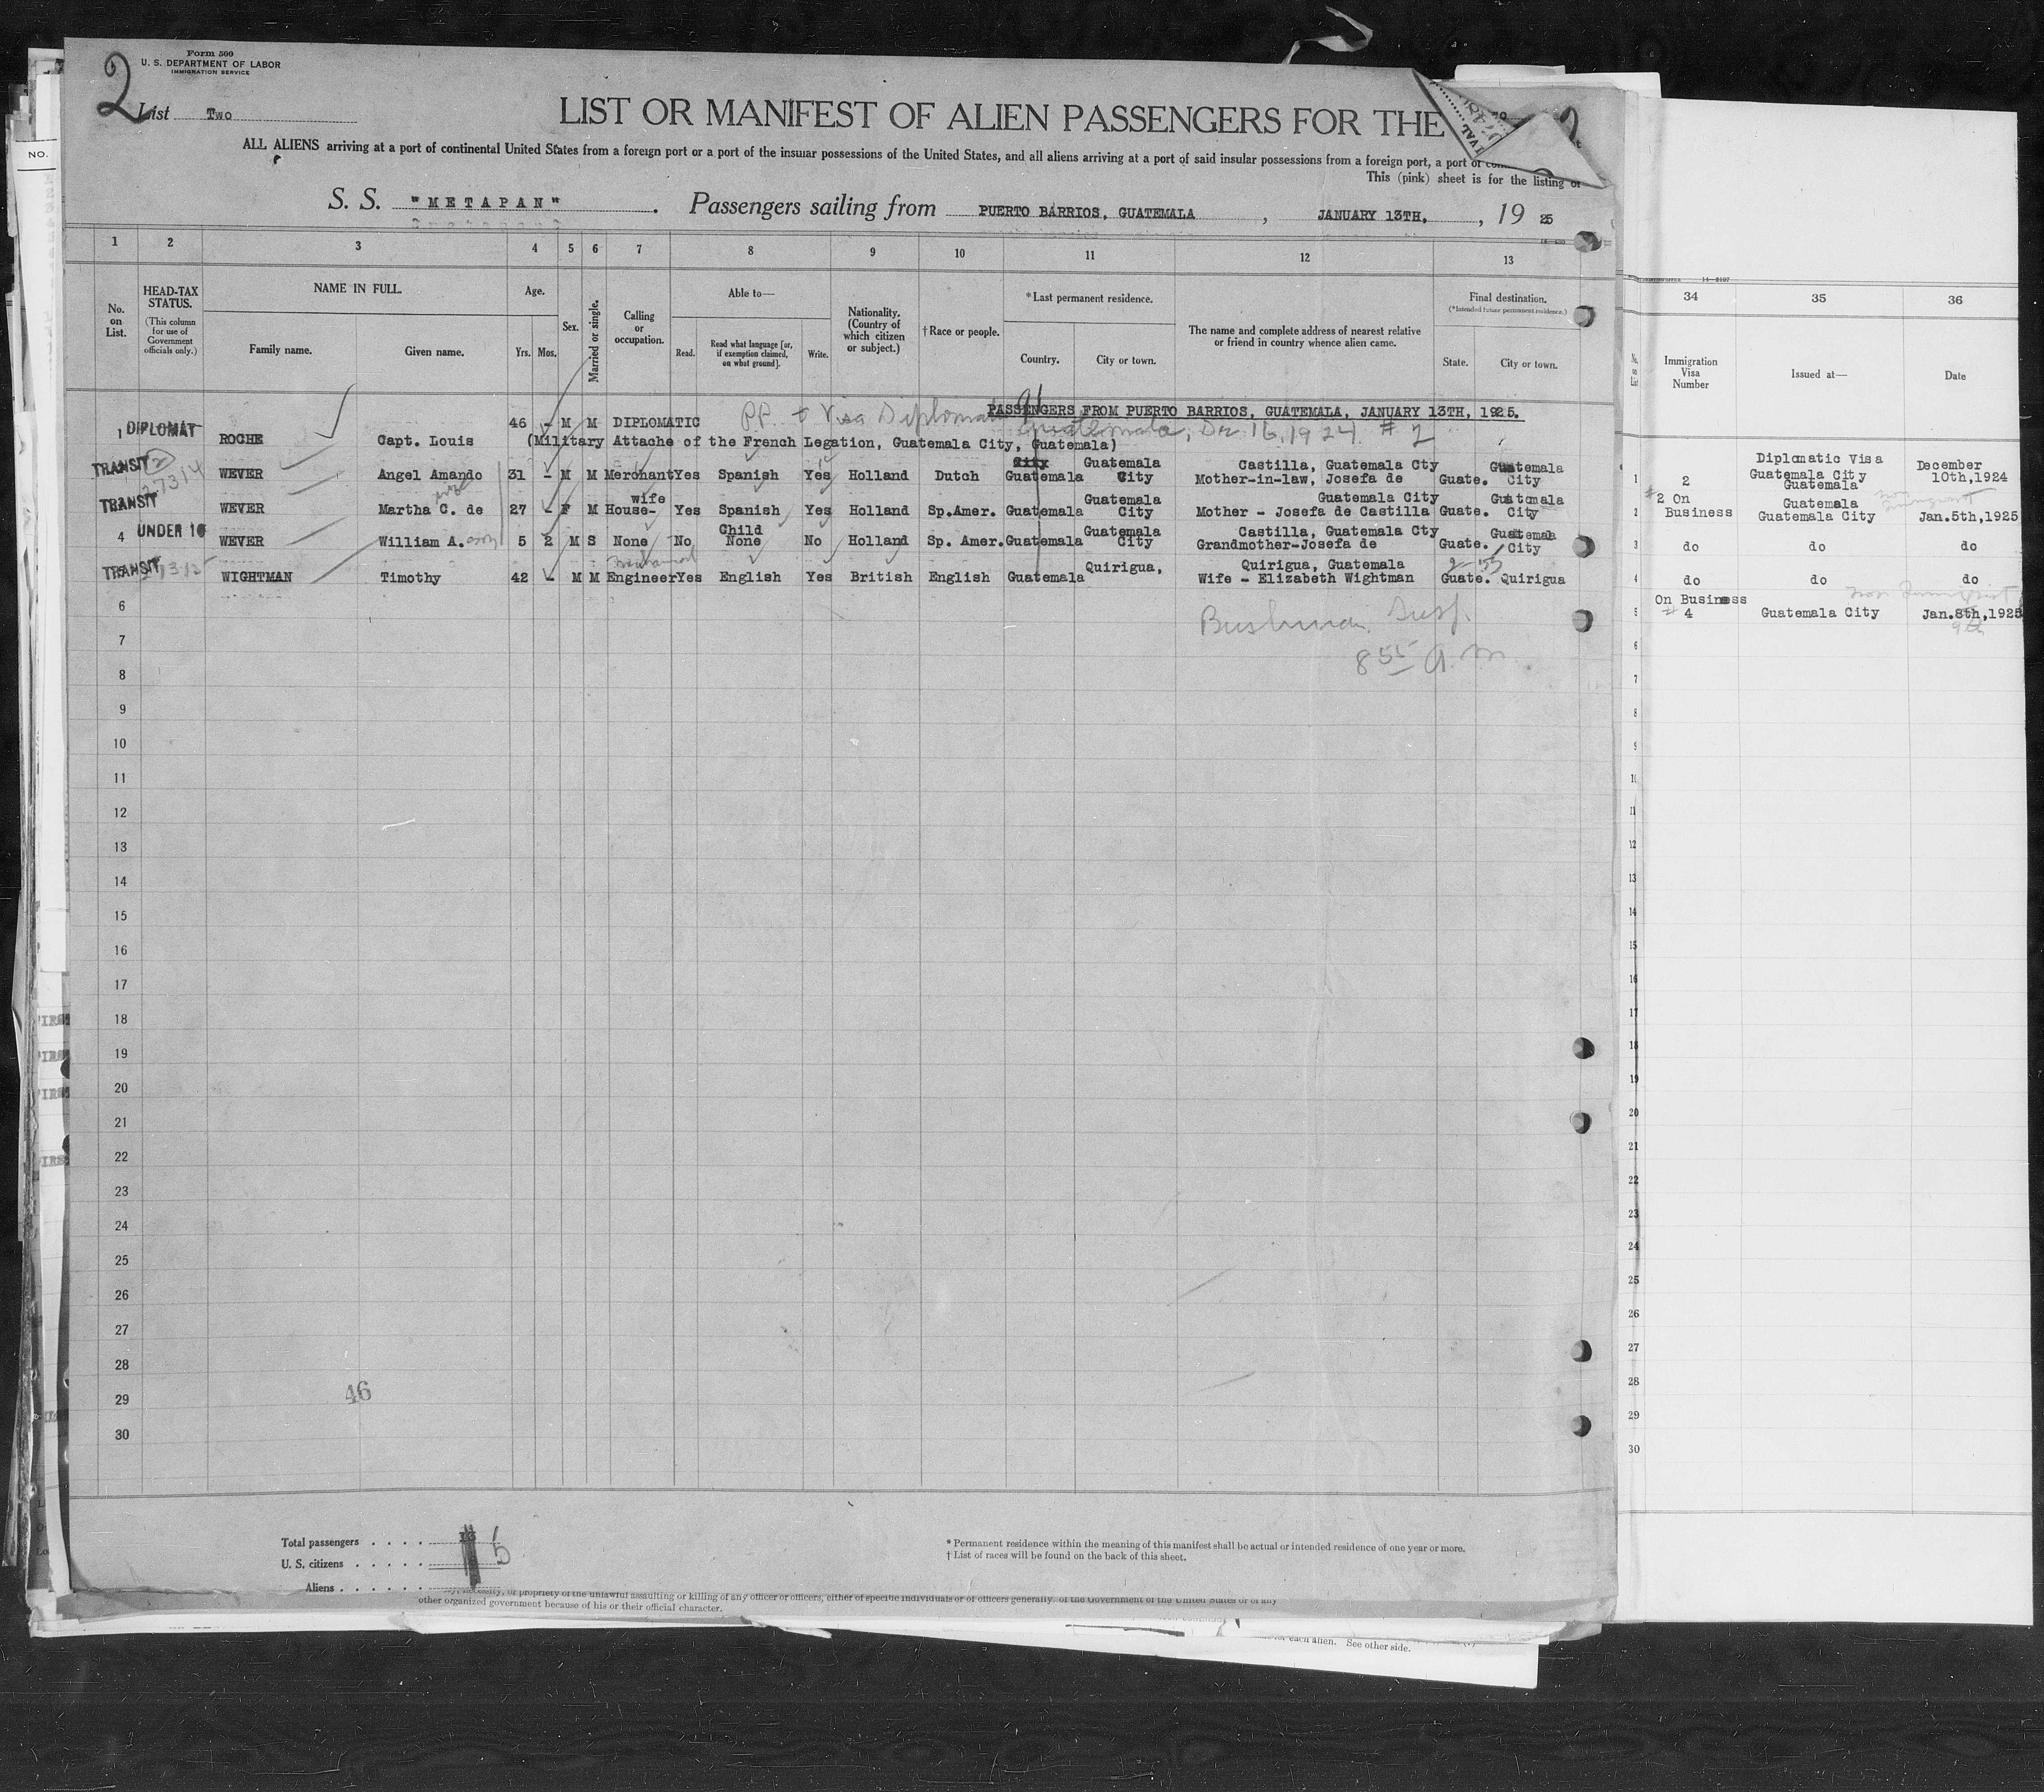 2
Form 500
U. S. DEPARTMENT OF LABOR
IMMIGRATION SERVICE
List Two
LIST OR MANIFEST OF ALIEN PASSENGERS FOR THE
ALL ALIENS arriving at a port of continental United States from a foreign port or a port of the insular possessions of the United States, and all aliens arriving at a port of said insular possessions from a foreign port, a port of
This (pink) sheet is for the listing of
S. S. "METAPAN". Passengers sailing from PUERTO BARRIOS, GUATEMALA, JANUARY 13TH, , 19 25
NO.
1 2 3 4 5 6 7 8 9 10 11 12 13
No. on List.
HEAD-TAX STATUS.
(This column for use of Government officials only.)
NAME IN FULL.
Family name. Given name.
Age.
Yrs. Mos.
Sex.
Married or single.
Calling or occupation.
Able to—
Read. Read what language [or, if exemption claimed, on what ground]. Write.
Nationality. (Country of which citizen or subject.)
†Race or people.
*Last permanent residence.
Country. City or town.
The name and complete address of nearest relative or friend in country whence alien came.
Final destination.
(*Intended future permanent residence.)
State. City or town.
34 35 36
No. on List
Immigration Visa Number
Issued at—
Date
PASSENGERS FROM PUERTO BARRIOS, GUATEMALA, JANUARY 13TH, 1925.
P.P. & Visa Diplomat Guatemala, Dec 16, 1924 # 2
1 DIPLOMAT ROCHE Capt. Louis 46 - M M DIPLOMATIC
(Military Attache of the French Legation, Guatemala City, Guatemala)
TRANSIT 2 27314 WEVER Angel Amando 31 - M M Merchant Yes Spanish Yes Holland Dutch Guatemala Guatemala City Mother-in-law, Josefa de Castilla, Guatemala Cty Guate. Guatemala City
TRANSIT WEVER Martha C. de wife 27 - F M House-wife Yes Spanish Yes Holland Sp.Amer. Guatemala Guatemala City Mother - Josefa de Castilla Guatemala City Guate. Guatemala City
4 UNDER 16 WEVER William A. son 5 2 M S None No Child None No Holland Sp. Amer. Guatemala Guatemala City Grandmother-Josefa de Castilla, Guatemala Cty Guate. Guatemala City
TRANSIT WIGHTMAN Timothy 42 - M M Engineer Yes English Yes British English Guatemala Quirigua, Wife - Elizabeth Wightman Quirigua, Guatemala Guate. Quirigua
8 55 A.M.
1 2 Diplomatic Visa Guatemala City Guatemala December 10th,1924
2 #2 On Business Guatemala Guatemala City Jan.5th,1925
3 do do do
4 do do do
5 On Business # 4 Guatemala City Jan.8th,1925
9th
6
7
8
9
10
11
12
13
14
15
16
17
18
19
20
21
22
23
24
25
26
27
28
29
30
6
7
8
9
10
11
12
13
14
15
16
17
18
19
20
21
22
23
24
25
26
27
28
29
30
46
Total passengers
U. S. citizens
Aliens
5
* Permanent residence within the meaning of this manifest shall be actual or intended residence of one year or more.
† List of races will be found on the back of this sheet.
or propriety of the unlawful assaulting or killing of any officer or officers, either of specific individuals or of officers generally, of the Government of the United States or of any
other organized government because of his or their official character.
for each alien. See other side.